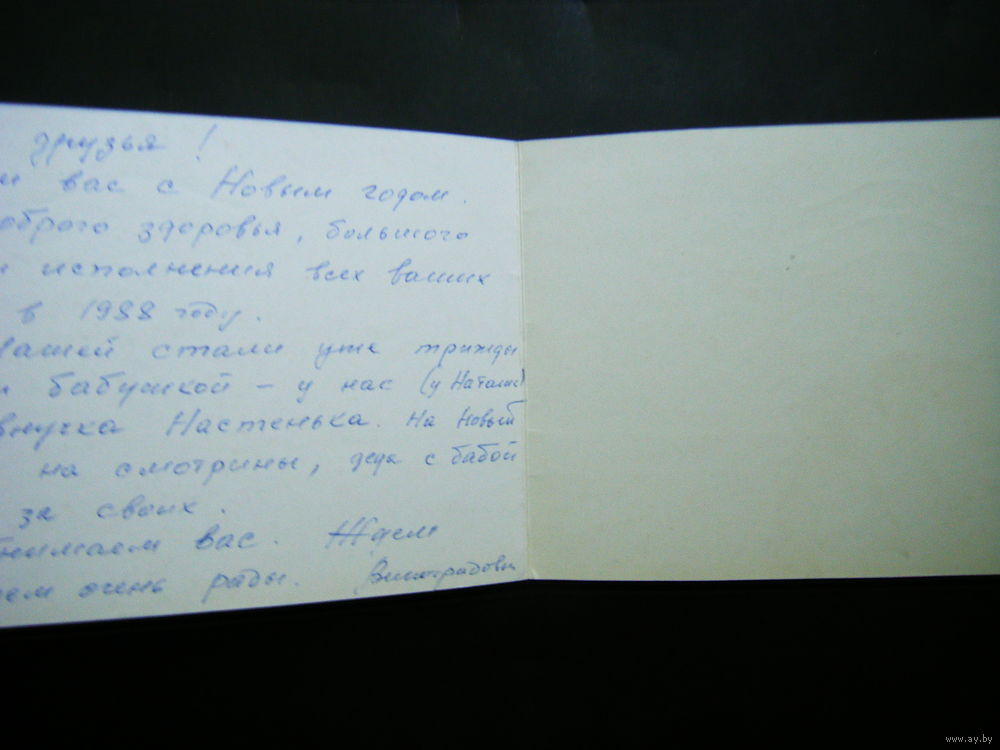 друзья!
м вас с Новым годом.
оброго здоровья, большого
и исполнения всех ваших
в 1988 году.
Пашей стали уже трижды
и бабушкой – у нас (у Наташи)
внучка Настенька. На Новый
на смотрины, деда с бабой
за своих.
нимаем вас. Ждем
ем очень рады. Виноградовы
www.ay.by